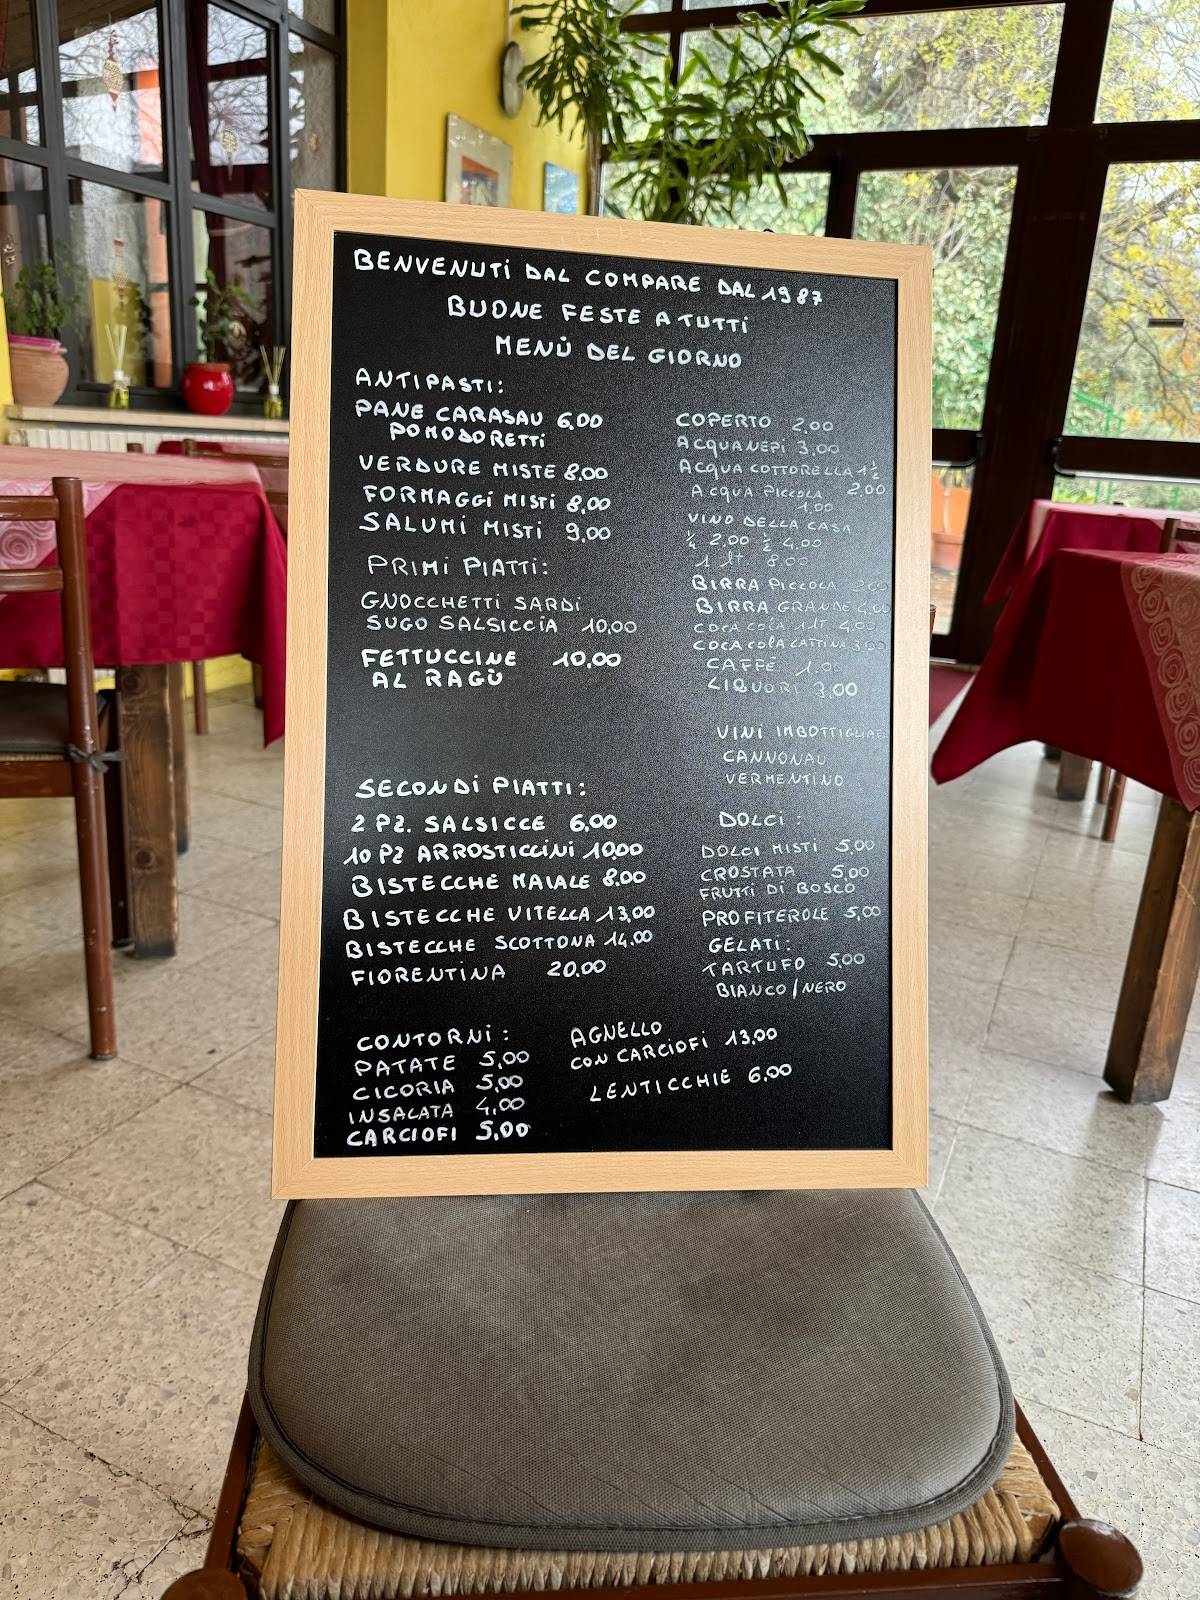 BENVENUTI DAL COMPARE DAL 1987
BUONE FESTE A TUTTI
MENÙ DEL GIORNO
ANTIPASTI:
PANE CARASAU 6,00
POMODORETTI
VERDURE MISTE 8,00
FORMAGGI MISTI 8,00
SALUMI MISTI 9,00
PRIMI PIATTI:
GNOCCHETTI SARDI
SUGO SALSICCIA 10,00
FETTUCCINE 10,00
AL RAGÙ
SECONDI PIATTI:
2 PZ. SALSICCE 6,00
10 PZ ARROSTICCINI 10,00
BISTECCHE MAIALE 8,00
BISTECCHE VITELLA 13,00
BISTECCHE SCOTTONA 14,00
FIORENTINA 20,00
CONTORNI:
PATATE 5,00
CICORIA 5,00
INSALATA 4,00
CARCIOFI 5,00
AGNELLO
CON CARCIOFI 13,00
LENTICCHIE 6,00
COPERTO 2,00
ACQUA NEPI 3,00
ACQUA COTTORELLA 1 ½
2,00
ACQUA PICCOLA
1,00
VINO DELLA CASA
¼ 2,00 ½ 4,00
1 lt 8,00
BIRRA PICCOLA
BIRRA GRANDE 4,00
COCA COLA 1LT 4,00
COCA COLA LATTINA 3,00
CAFFÈ 1,00
LIQUORI 3,00
VINI IMBOTTIGLIATI
CANNONAU
VERMENTINO
DOLCI:
DOLCI MISTI 5,00
CROSTATA 5,00
FRUTTI DI BOSCO
PROFITEROLE 5,00
GELATI:
TARTUFO 5,00
BIANCO/NERO